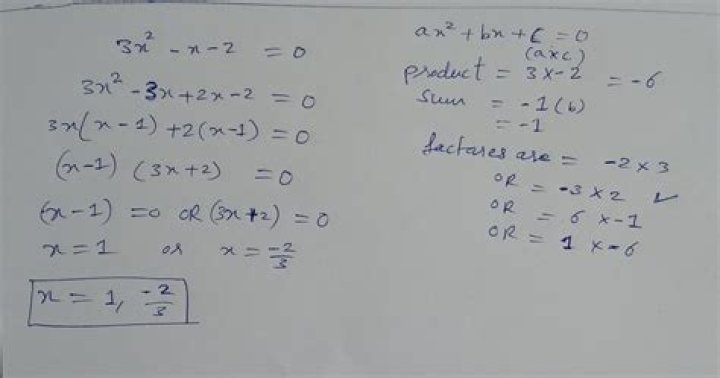 3x² - x - 2 = 0
3x² - 3x + 2x - 2 = 0
3x(x - 1) + 2(x - 1) = 0
(x - 1) (3x + 2) = 0
(x - 1) = 0 OR (3x + 2) = 0
x = 1 or x = -2/3
x = 1, -2/3
ax² + bx + c = 0
(axc)
product = 3 x -2 = -6
Sum = -1 (b)
= -1
factares are = -2 x 3
OR = -3 x 2 ✓
OR = 6 x -1
OR = 1 x -6